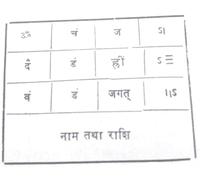 ॐ चं ज ऽ।
दँ डं ह्रीं ऽ☰
बं डं जगत् ।।ऽ
नाम तथा राशि